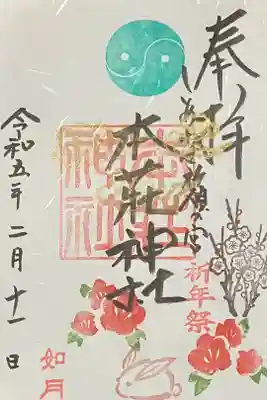 奉拝
本荘神社
祈年祭
令和五年二月十一日
如月